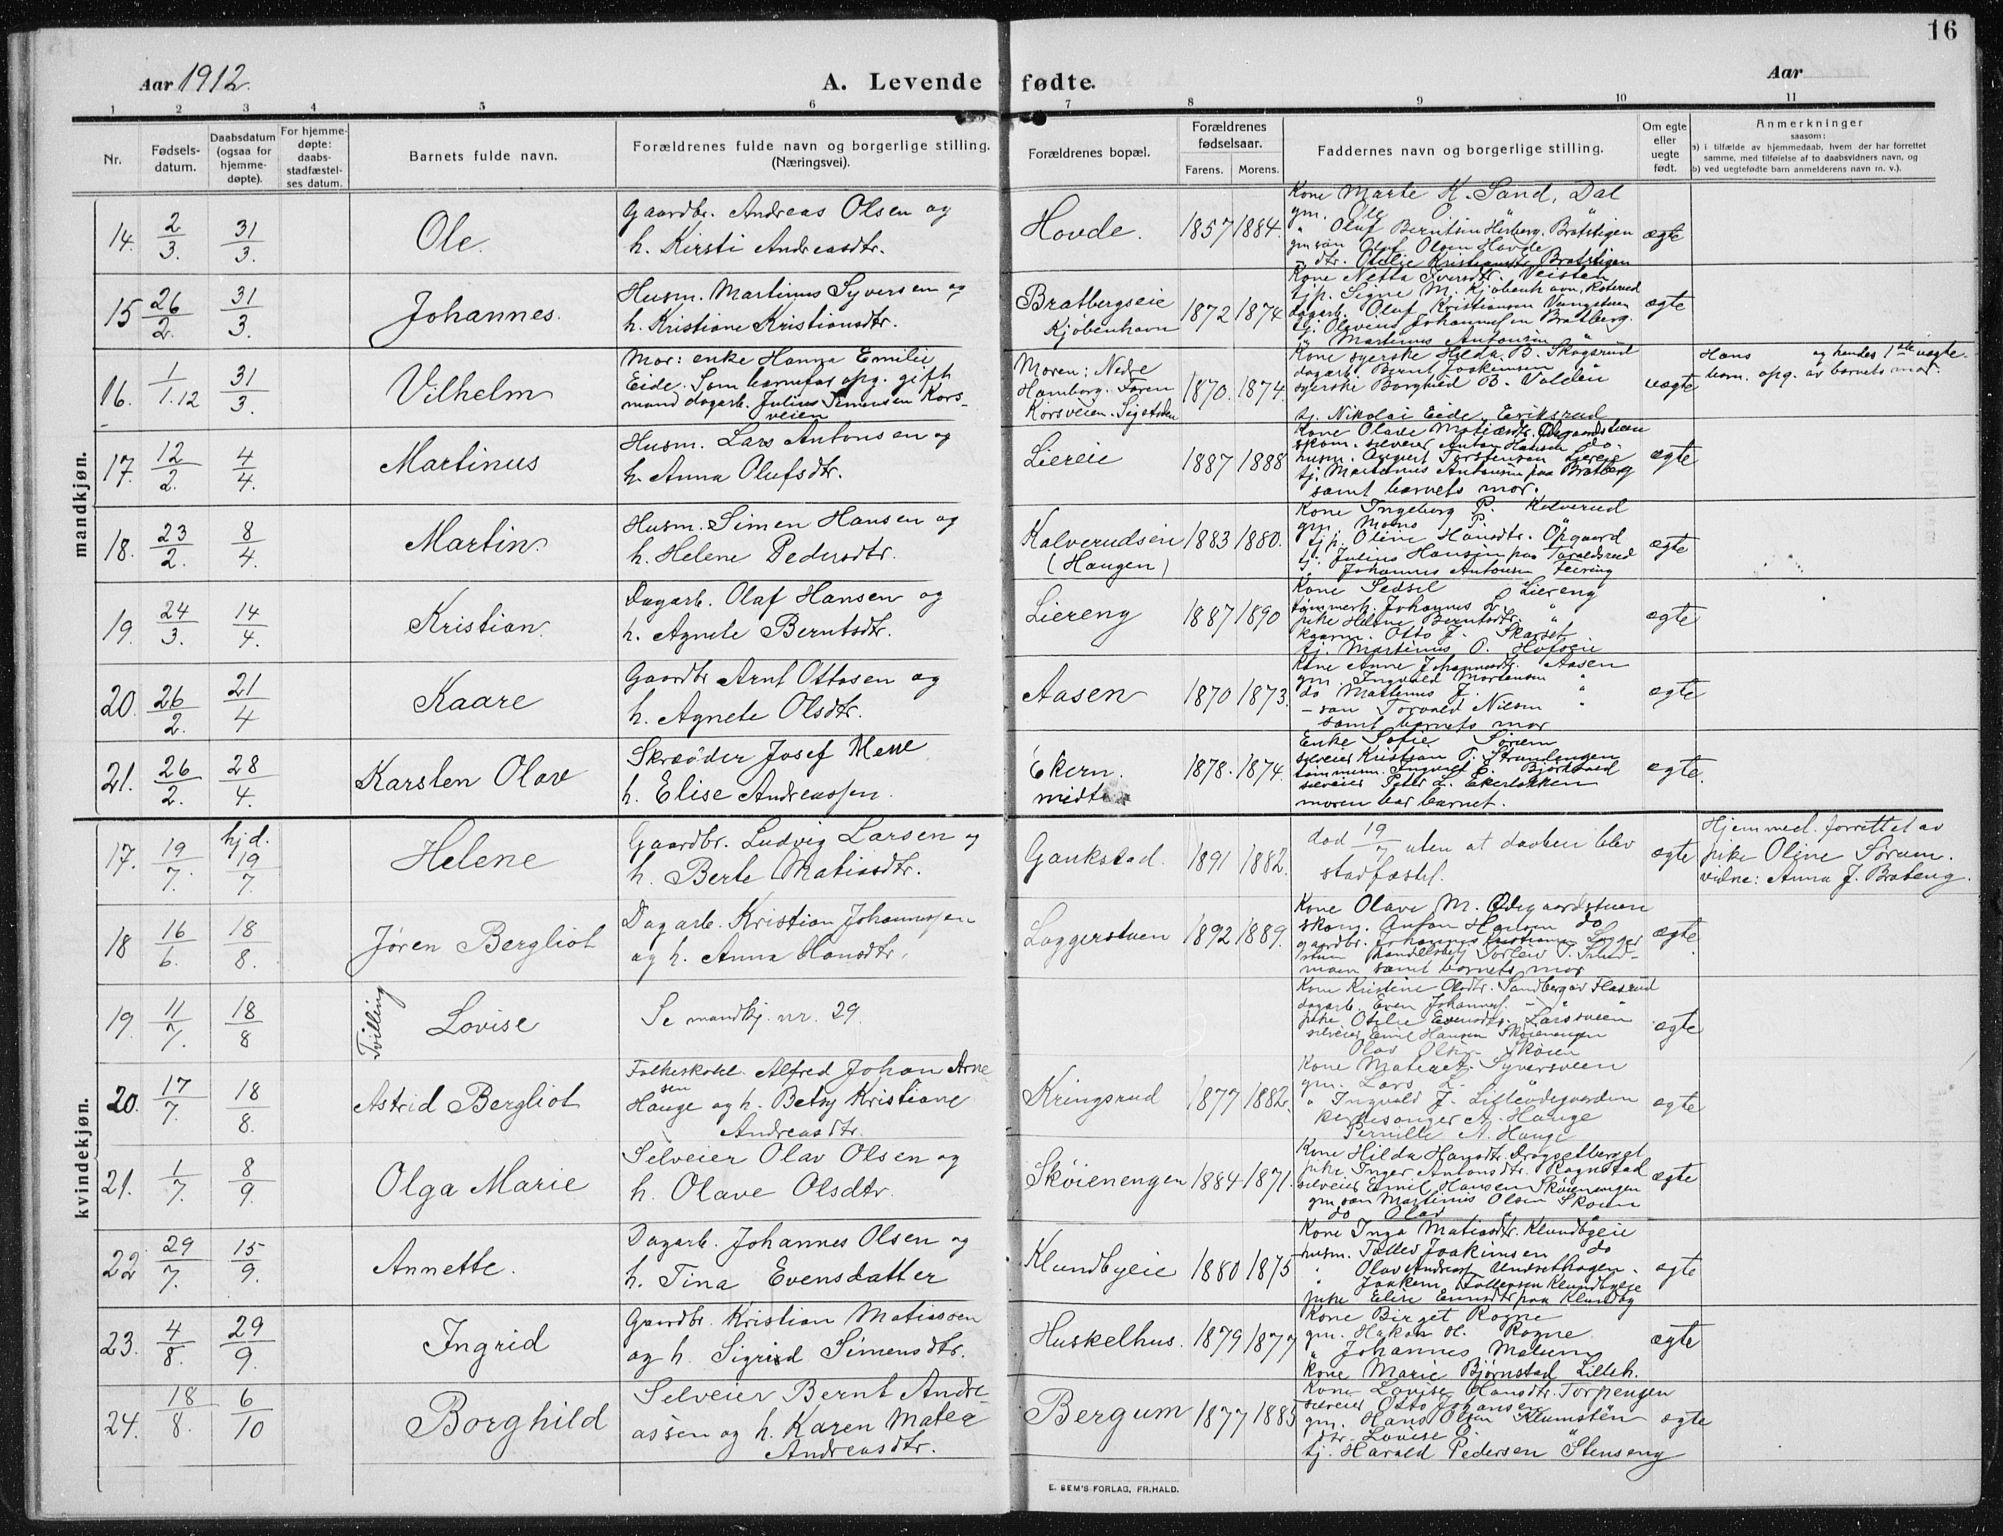 16
Aar 1912.
A. Levende fødte.
Aar
1 2 3 4 5 6 7 8 9 10 11
Nr.
Fødsels-
datum.
Daabsdatum
(ogsaa for
hjemme-
døpte).
For hjemme-
døpte:
daabs-
stadfæstel-
ses datum.
Barnets fulde navn.
Forældrenes fulde navn og borgerlige stilling.
(Næringsvei).
Forældrenes bopæl.
Forældrenes
fødselsaar.
Farens. Morens.
Faddernes navn og borgerlige stilling.
Om egte
eller
uegte
født.
Anmerkninger
saasom:
a) i tilfælde av hjemmedaab, hvem der har forrettet
samme, med tilføielse af to daabsvidners navn, og
b) ved uegtefødte barn anmelderens navn m. v.).
mandkjøn.
14. 2/3. 31/3. Ole.
Gaardbr. Andreas Olsen og
h. Kirsti Andreasdtr.
Hovde. 1857 1884.
Kone Marte K. Sand, Dal
gm. Ole O "
" Olaf Berntsen Bratstigen
gm søn Olaf Olsen Hovde
- dtr. Otelie Bratstigen
ægte
15 26/2. 31/3 Johannes.
Husm. Martinus Syversen og
h. Kristiane Kristiansdtr.
Bratbergseie
Kjøbenhavn
1872 1874
Kone Netta Syversdtr. Veisten
tj.p. Signe M. Kjøbenhavn,
dagarb. Olaf Kristiansen
tj. Olavus Johannessen Bratberg.
" Martinus Antonsen "
ægte
16. 1/1.12 31/3 Vilhelm
Mor: enke Hanna Emilie
Eide. Som barnefar opg. gift
mand dagarb. Julius Simensen Kors-
veien
Moren: Nedre
Hamborg. Faren
Korsveien.
1870. 1874.
Kone syerske Hilda B. Skogsrud
dagarb. Bernt Joakimsen "
syerske Borghild B.
tj. Nikolai Eide, Eriksrud
uegte
Hans og hendes 1ste uegte
barn. opg. av barnets mor.
17. 12/2. 4/4. Martinus
Husm. Lars Antonsen og
h. Anna Olufsdtr.
Liereie 1887 1888
Kone Olave Matiasdtr. Ødegaardstuen
skom. selveier Anton Hansen do.
husm. August Torstensen Liereie
tj. Martinus Antonsen paa Bratberg
samt barnets mor.
ægte
18. 23/2. 8/4. Martin.
Husm. Simen Hansen og
h. Helene Pedersdtr.
Kalverudseie
(Haugen)
1883 1880.
Kone Ingeborg P. Kalverud
gm. Mons P. "
tj.p. Oline Hansdtr. Opgaard
tj. Julius Hansen paa Taraldsrud
" Johannes Antonsen Feiring
ægte
19. 24/3. 14/4. Kristian.
Dagarb. Olaf Hansen og
h. Agnete Berntsdtr.
Liereng 1887 1890
Kone Sedsel L. Liereng
tømmerh. Johannes L. "
pike Helene Berntsdtr. "
Otto J. Skarset
tj. Martinus O. Hofseie
ægte
20. 26/2. 21/4 Kaare
Gaardbr Arnt Ottosen og
h. Agnete Olsdtr.
Aasen 1870 1873.
Kone Anne Johannesdtr. Aasen
gm. Ingvald Mortensen "
do Martinus J. "
- søn Torvald Nilsen "
samt barnets mor
ægte
21. 26/2. 28/4. Karsten Olav
Skræder Josef
h. Elise Andreassen.
Ekern.
midt
1878. 1874.
Enke Sofie Sørem
selveier Kristian T.
tømmerm. Ingvald E. Bjørkerud
selveier Peter L. Ekerløkken
moren bar barnet.
ægte.
kvindekjøn.
17. 19/7. hjd. 19/7. Helene
Gaardbr. Ludvig Larsen og
h. Berte Matiasdtr.
Gaukstad. 1891 1882.
død 19/7 uten at daaben blev
stadfæstet.
ægte
Hjemmed. forrettet av
pike Oline Sørum.
vidne: Anna J. Brateng.
18 16/6. 18/8. Jøren Bergliot
Dagarb. Kristian Johannessen
og h. Anna Hansdtr.
Laggerstuen 1892 1889.
Kone Olave M. Ødegaardstuen
skom. Anton Hansen do
gaardbr. Johannes Kristiansen Lagger
stuen Handelsbetj Torleiv T. Strand-
moen samt barnets mor
ægte.
19. 11/7. 18/8 Tvilling Lovise
Se mandkj. nr. 29
Kone Kristine Olsdtr. Sandberg av Flasrud
dagarb. Even Johannes. - " "
pike Otelie Evensdtr. Larsveien
selveier Emil Hansen Skøienengen
Olav Olsen Skøien
ægte
20. 17/7. 18/8. Astrid Bergliot
Folkeskol. Alfred Johan Arne
sen
Hauge og h. Betsy Kristiane
Andreasdtr.
Kringsrud 1877 1882.
Kone Matea Syversveen
gm. Lars L. "
" Ingvald J. Lilleødegaarden
kirkesanger A. Hauge
Pernille A. Hauge
ægte
21. 1/7. 8/9. Olga Marie
Selveier Olav Olsen og
h. Olave Olsdtr.
Skøienengen 1884 1871.
Kone Hilda Hansdtr. Drogsetberget
pike Inger Antonsdtr. Rognstad
selveier Emil Hansen Skøienengen
gm søn Martinius Olsen Skøien
do Olav "
ægte
22. 29/7. 15/9. Annette.
Dagarb. Johannes Olsen og
h. Tina Evensdatter
Klundbyeie 1880 1875
Kone Inga Matiasdtr. Klundbyeie
husm. Tollev Joakimsen do
" Olav Andreas. Undsethagen.
" Joakim Tollevsen Klundbyeie
pike Elise Evensdtr paa Klundby
ægte
23. 4/8. 29/9. Ingrid
Gaardbr. Kristian Matiassen
og h. Sigrid Simensdtr.
Huskelhus. 1879 1877
Kone Birget Rogne
gm. Hakon H. Rogne.
" Johannes Melum
kone Marie Bjørnstad Lilleh.
ægte
24. 18/8. 6/10 Borghild
Selveier Bernt Andre-
assen og h. Karen Matea
Andreasdtr.
Bergum 1877 1885
Kone Lovise Hansdtr. Torpengen
selveier Otto Johansen "
gm. Hans Olsen Klumsten
dtr. Lovise O. "
tj. Harald Pedersen Stenseng
ægte
E. SEM'S FORLAG, FR.HALD.